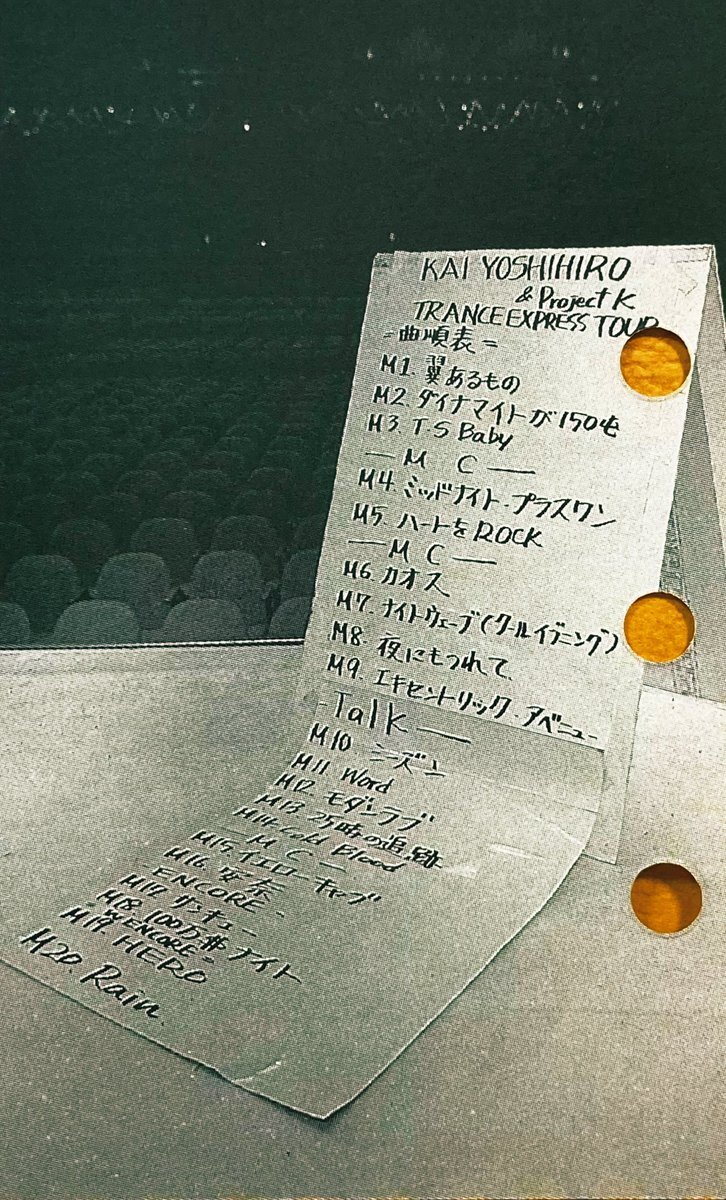 KAI YOSHIHIRO
& Project K
TRANCE EXPRESS TOUR
=曲順表=
M1. 翼あるもの
M2. ダイナマイトが150屯
M3. T S Baby
— M C —
M4. ミッドナイト・プラスワン
M5. ハートをROCK
— M C —
M6. カオス
M7. ナイトウェーブ(クールイブニング)
M8. 夜にもつれて
M9. エキセントリック・アベニュー
- Talk —
M10 シーズン
M11 Word
M12. モダンラブ
M13 25時の追跡
M14. Cold Blood
— M C —
M15. イエローキャブ
M16. 安奈
- ENCORE -
M17 サンキュー
M18 100万$ナイト
="W ENCORE"=
M19 HERO
M20. Rain.